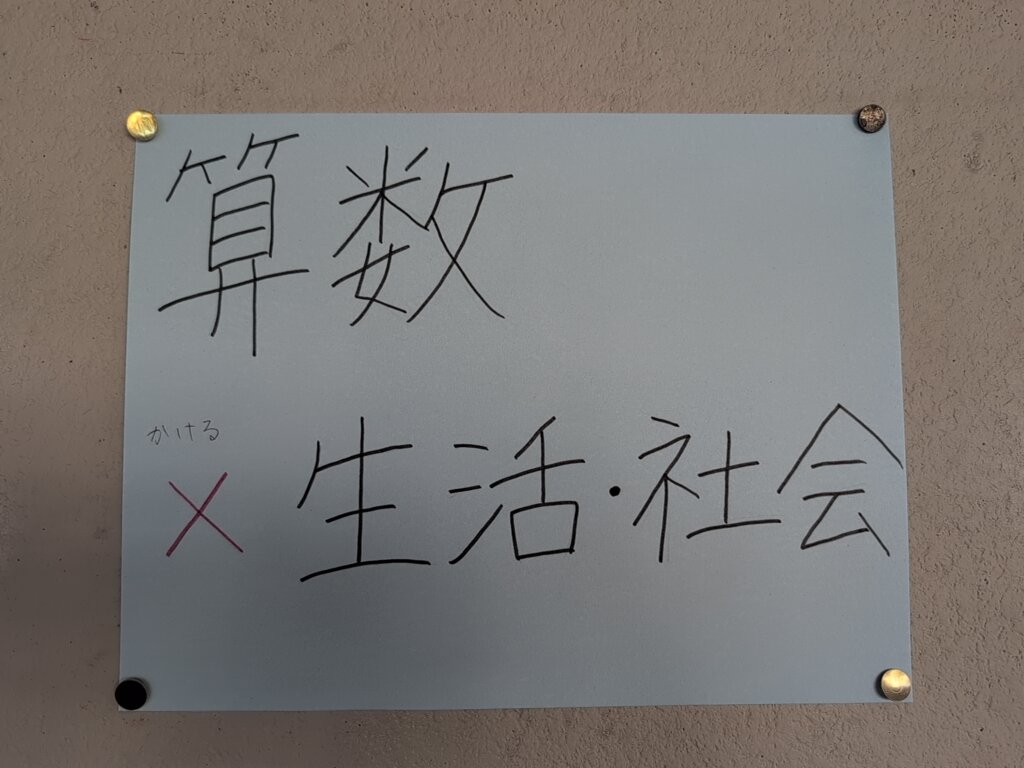 算数
かける
× 生活・社会